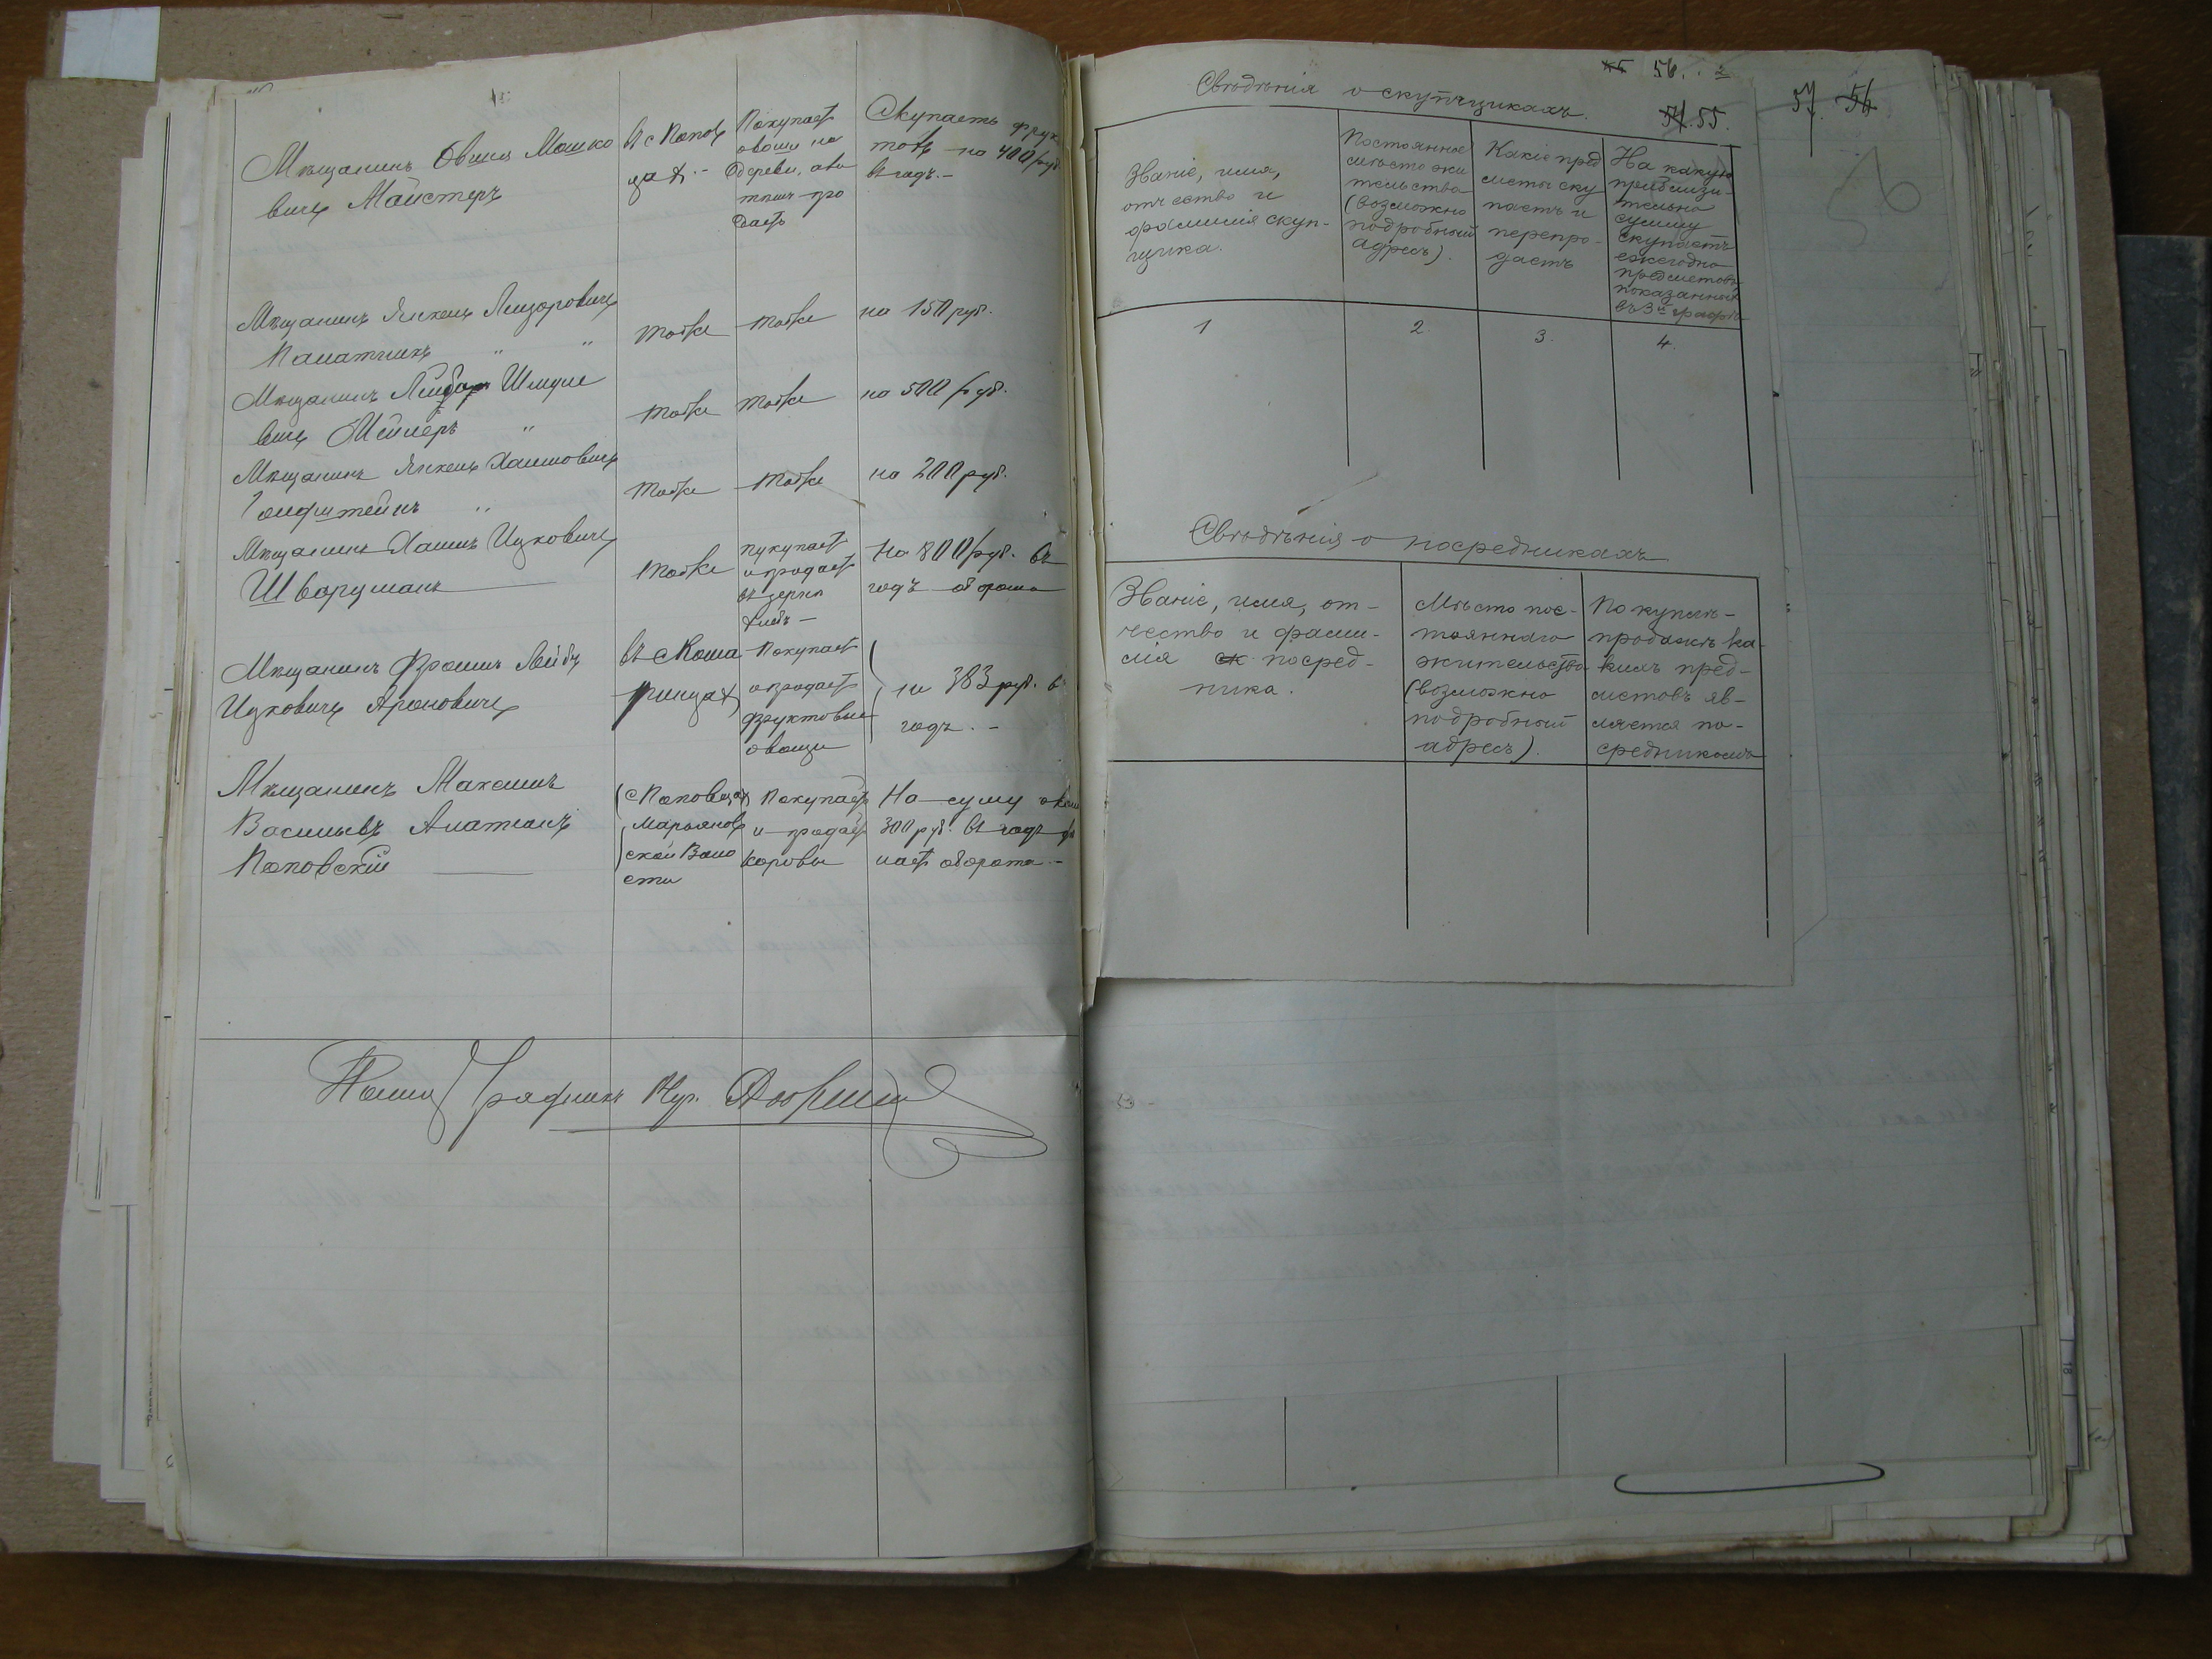 Мѣщанинъ Овшія Мошко
вичъ Майстеръ
въ с Попов
цахъ.-
Покупаетъ
овощи на
деревѣ, а по
томъ про
даетъ
Скупаетъ фрук
товъ на 400 руб
въ годъ.-
Мѣщанинъ Янкель Лизоровичъ
Палатникъ " "
тоже
тоже
на 150 руб.
Мѣщанинъ Шмуле
вичъ Мейлеръ "
тоже
тоже
на 500 руб.
Мѣщанинъ Янкель Хаимовичъ
Гольфштейнъ "
тоже
тоже
на 200 руб.
Мѣщанинъ Хаимъ Ицковичъ
Шварцманъ
тоже
пукупаетъ
и продаетъ
въ зерна
хлѣбъ —
На 800 руб. въ
годъ оборота
Мѣщанинъ Фроимъ Лейбъ
Ицковичъ Ароновичъ
въ с Коша
ринцахъ
Покупаетъ
и продаетъ
фруктовые
овощи
на 383 руб. в
годъ. -
Мѣщанинъ Максимъ
Васильевъ
Поповскій
с Поповцахъ
Марьянов
ской Воло
сти
Покупаетъ
и продаетъ
коровы
На суму
300 руб. въ годъ
оборота.-
56. 2
57 56
54. 55.
Свѣдѣнія о скупщикахъ.
Званіе, имя,
отчество и
фамилія скуп-
щика.
Постоянное
мѣсто жи
тельства
(возможно
подробный
адресъ).
Какіе пред
меты ску
паетъ и
перепро-
даетъ
На какую
приблизи-
тельно
сумму
скупаетъ
ежегодно
предметовъ
показанныхъ
въ 3й графѣ
1 2 3. 4.
Свѣдѣнія о посредникахъ
Званіе, имя, от-
чество и фами-
лія посред-
ника.
Мѣсто пос-
тояннаго
жительства
(возможно
подробный
адресъ).
По куплѣ-
продажѣ ка-
кихъ пред-
метовъ яв-
ляется по-
средникомъ